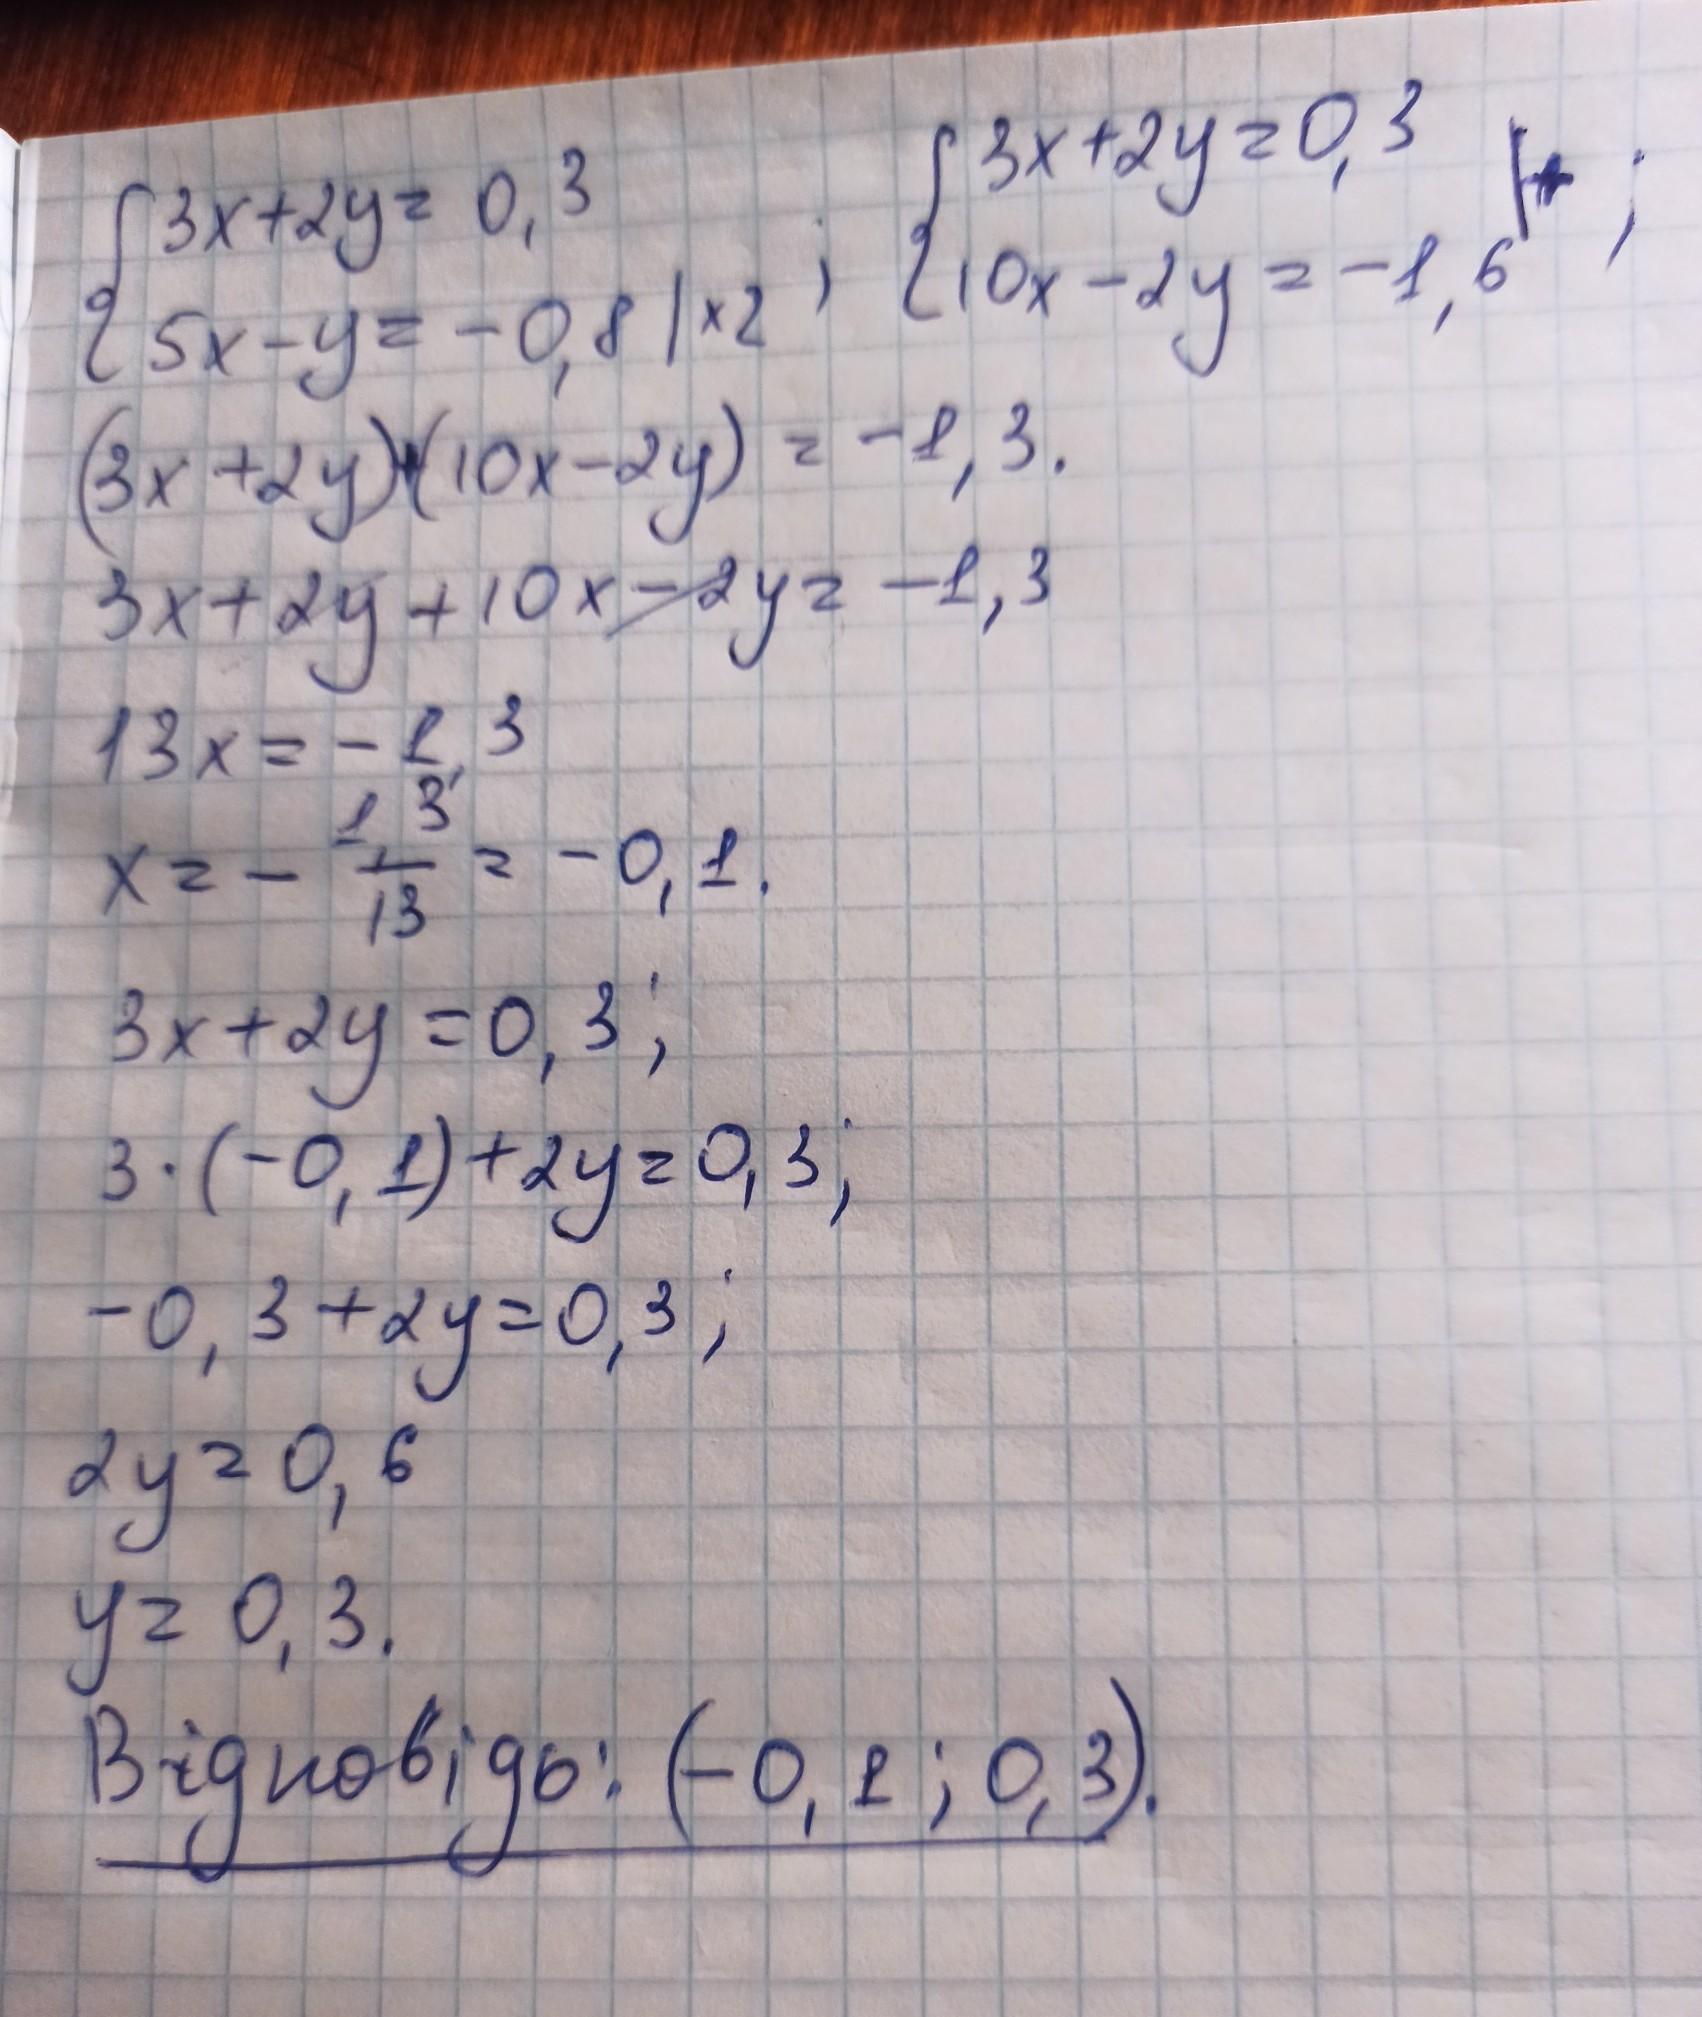 {3x+2y=0,3 ; {3x+2y=0,3 |+ ;
{5x-y=-0,8 |×2 {10x-2y=-1,6
(3x+2y)+(10x-2y)=-1,3.
3x+2y+10x-2y=-1,3
13x=-1,3
x=-1,3/13=-0,1.
3x+2y=0,3;
3·(-0,1)+2y=0,3;
-0,3+2y=0,3;
2y=0,6
y=0,3.
Відповідь: (-0,1; 0,3).